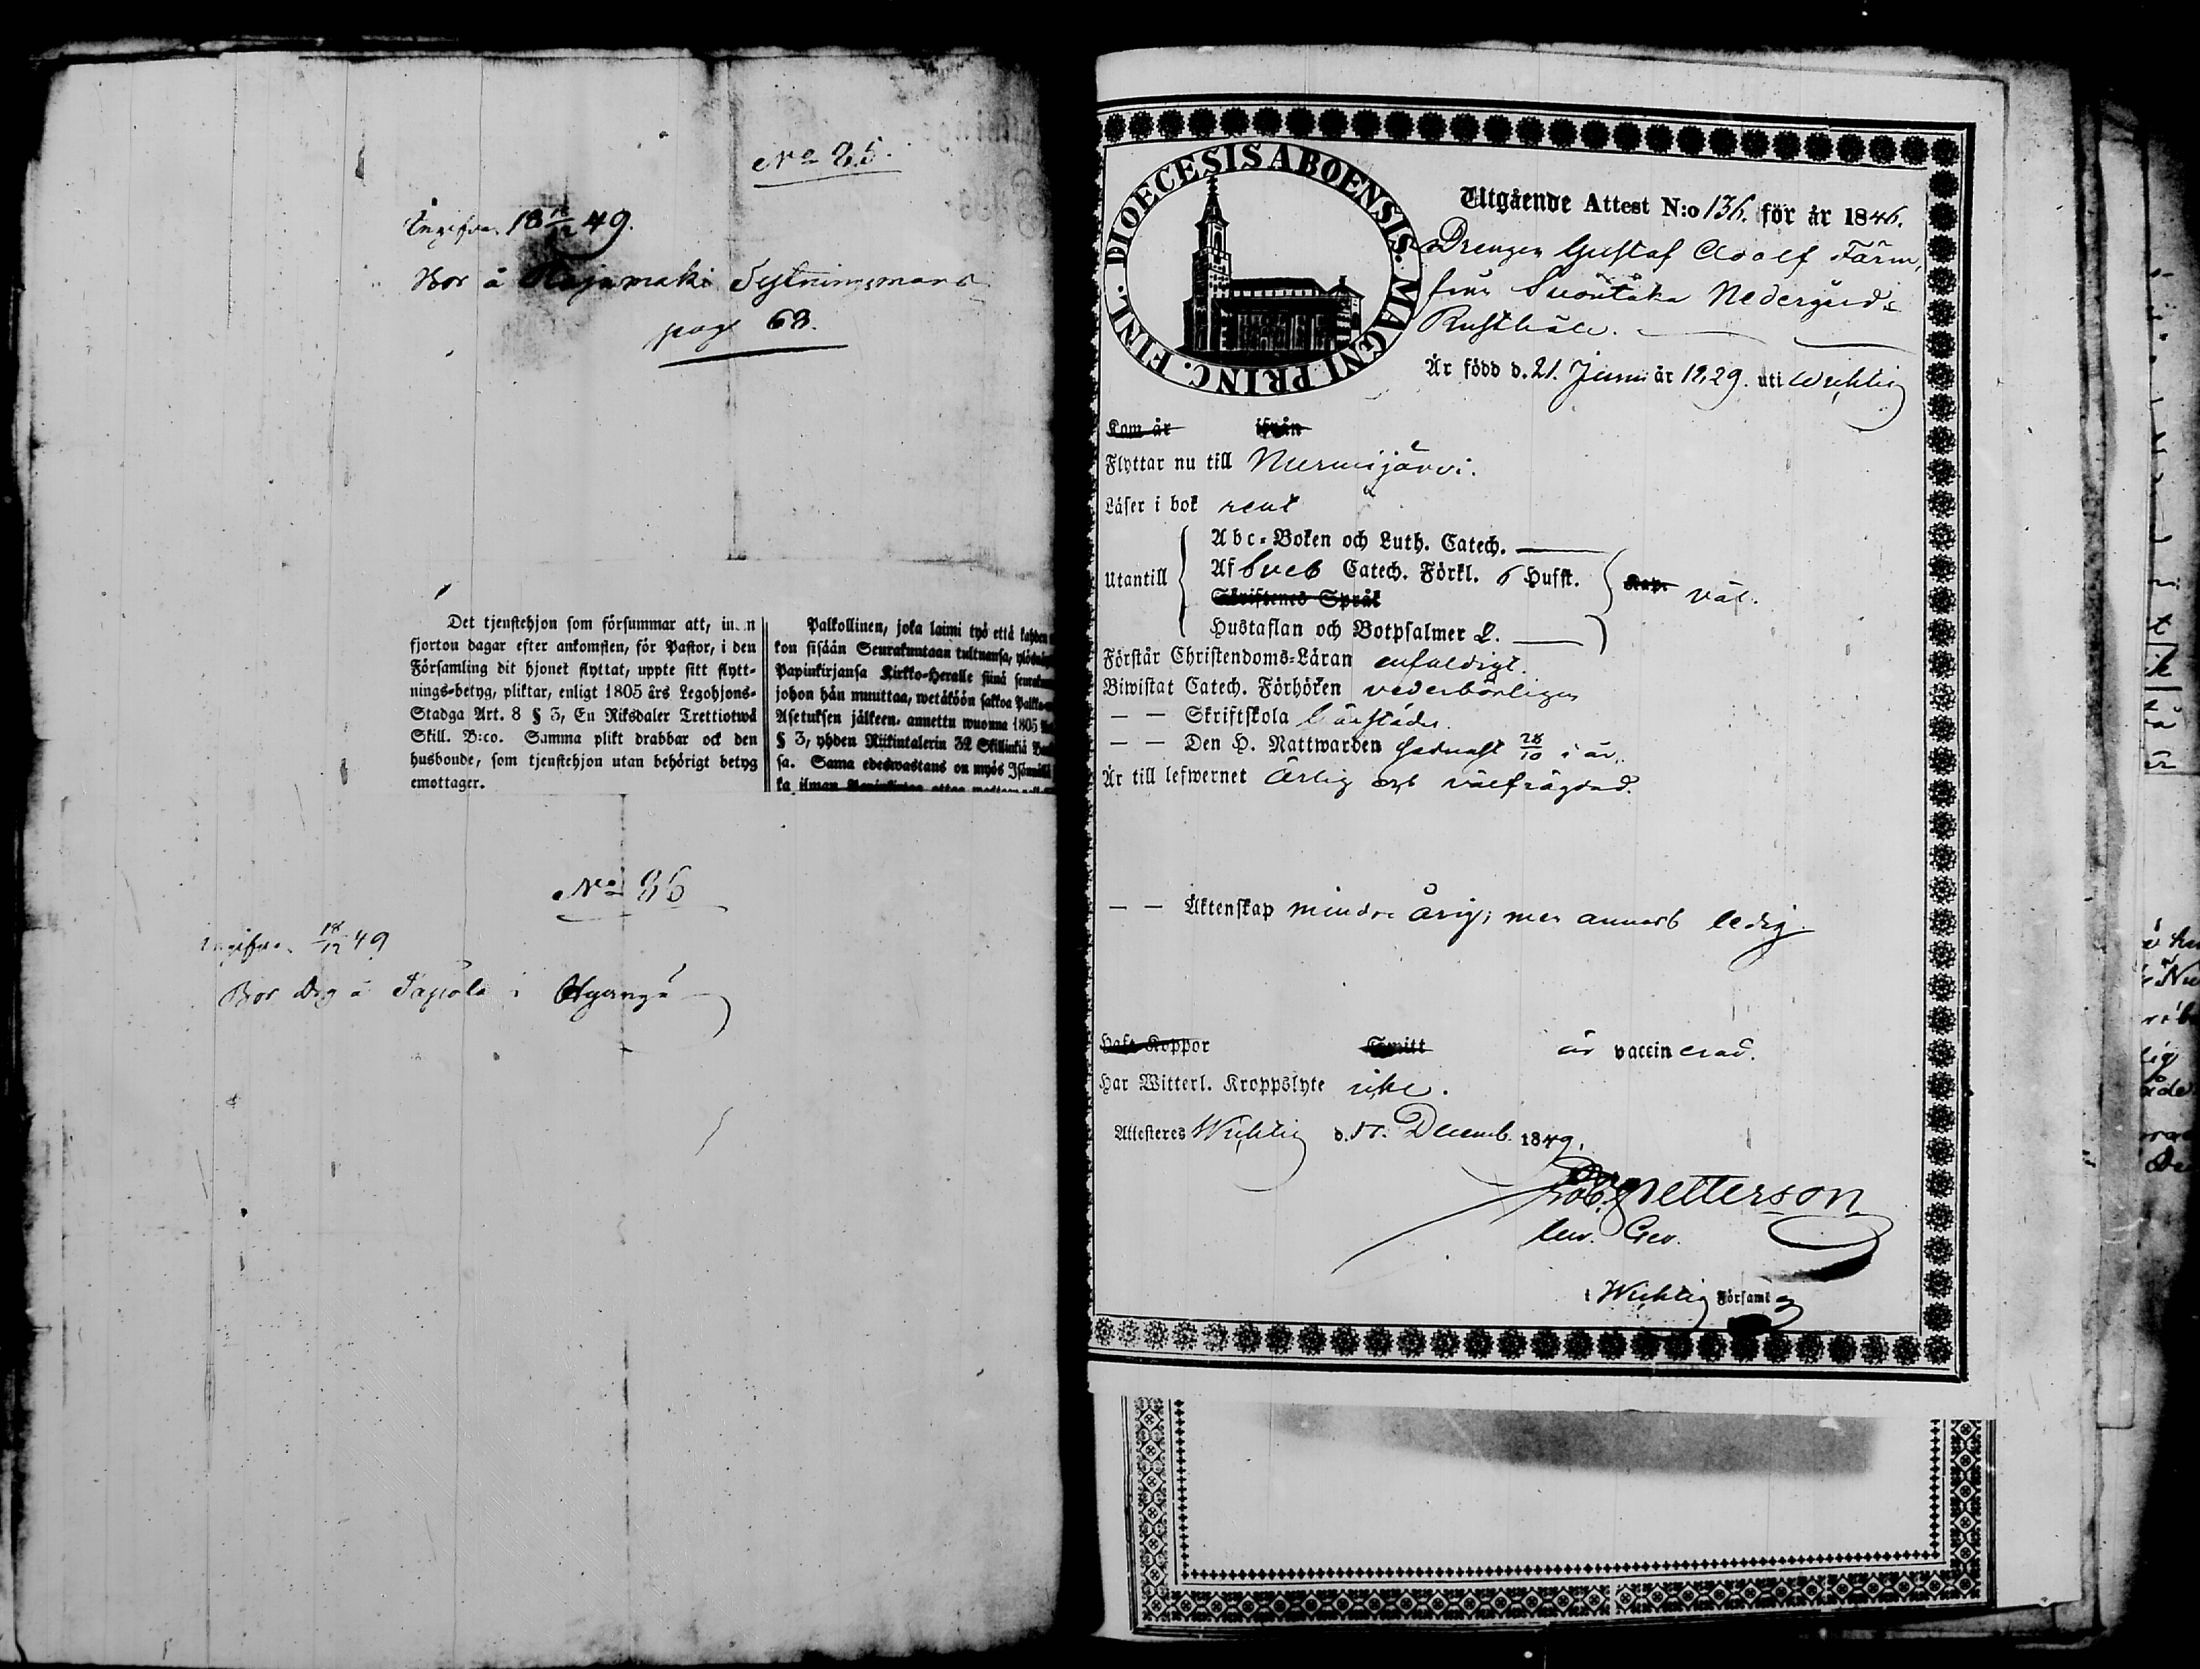 No 85.
Ingifven 18 18/12 49.
Bor å Rajamäki Sytningsmans
pag 68.
Det tjenstehjon som försummar att, innan
fjorton dagar efter ankomsten, för Pastor, i den
Församling dit hjonet flyttat, uppte sitt flytt-
nings-betyg, pliktar, enligt 1805 års Legohjons-
Stadga Art. 8 § 3, En Riksdaler Trettiotwå
Skill. B:co. Samma plikt drabbar ock den
husbonde, som tjenstehjon utan behörigt betyg
emottager.
Palkollinen, joka laimi lyö että kahden
kon sisään Seurakuntaan tultuansa, ylösnäyt
Papinkirjansa Kirkko-Heralle siinä seurakun
johon hän muuttaa, wetäköön sakkoa Palkko
Asetuksen jälkeen, annettu wuonna 1805
§ 3, yhden Riikintalerin 32 Skillinkiä Ban
sa. Sama edeswastaus on myös Isännällä
ka ilman Papinkirjaa ottaa
No 86
Ingifven 18/12 49
Bor Drg å Tapola i Hyvinge
DIOECESIS ABOENSIS. MAGNI PRINC. FINL.
Utgående Attest N:o 136. för år 1846.
Drengen Gustaf Adolf Färm,
från Suontaka Nedergårds
Rusthåll.
Är född d. 21. Juni år 1829. uti Wichtis
Kom år ifrån
Flyttar nu till Nurmijärvi.
Läser i bok rent
Utantill
Abc-Boken och Luth. Catech.
Af Sveb Catech. Förkl. 6 Hufst.
Kap. väl.
Skriftenes Språk
Hustaflan och Botpsalmer 2.
Förstår Christendoms-Läran enfaldigt.
Biwistat Catech. Förhören vederbörligen
— — Skriftskola
— — Den H. Nattwarden sednast 28/10 i år.
Är till lefwernet ärlig och välfrägdad.
— — Äktenskap minderårig; men annars ledig.
Haft Koppor Smitt är vaccinerad.
Har Witterl. Kroppslyte icke.
Attesteres Wichtis d. 17. Decemb. 1849.
Rob. Petterson
i Wichtis Församl